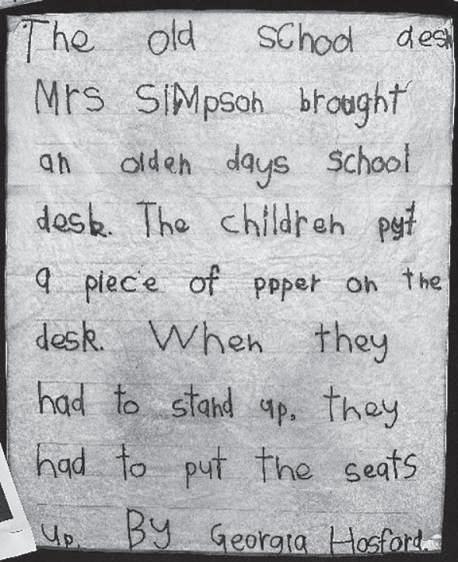 The old school desk
Mrs Simpson brought
an olden days school
desk. The children put
a piece of ppper on the
desk. When they
had to stand up, they
had to put the seats
up. By Georgia Hosford.